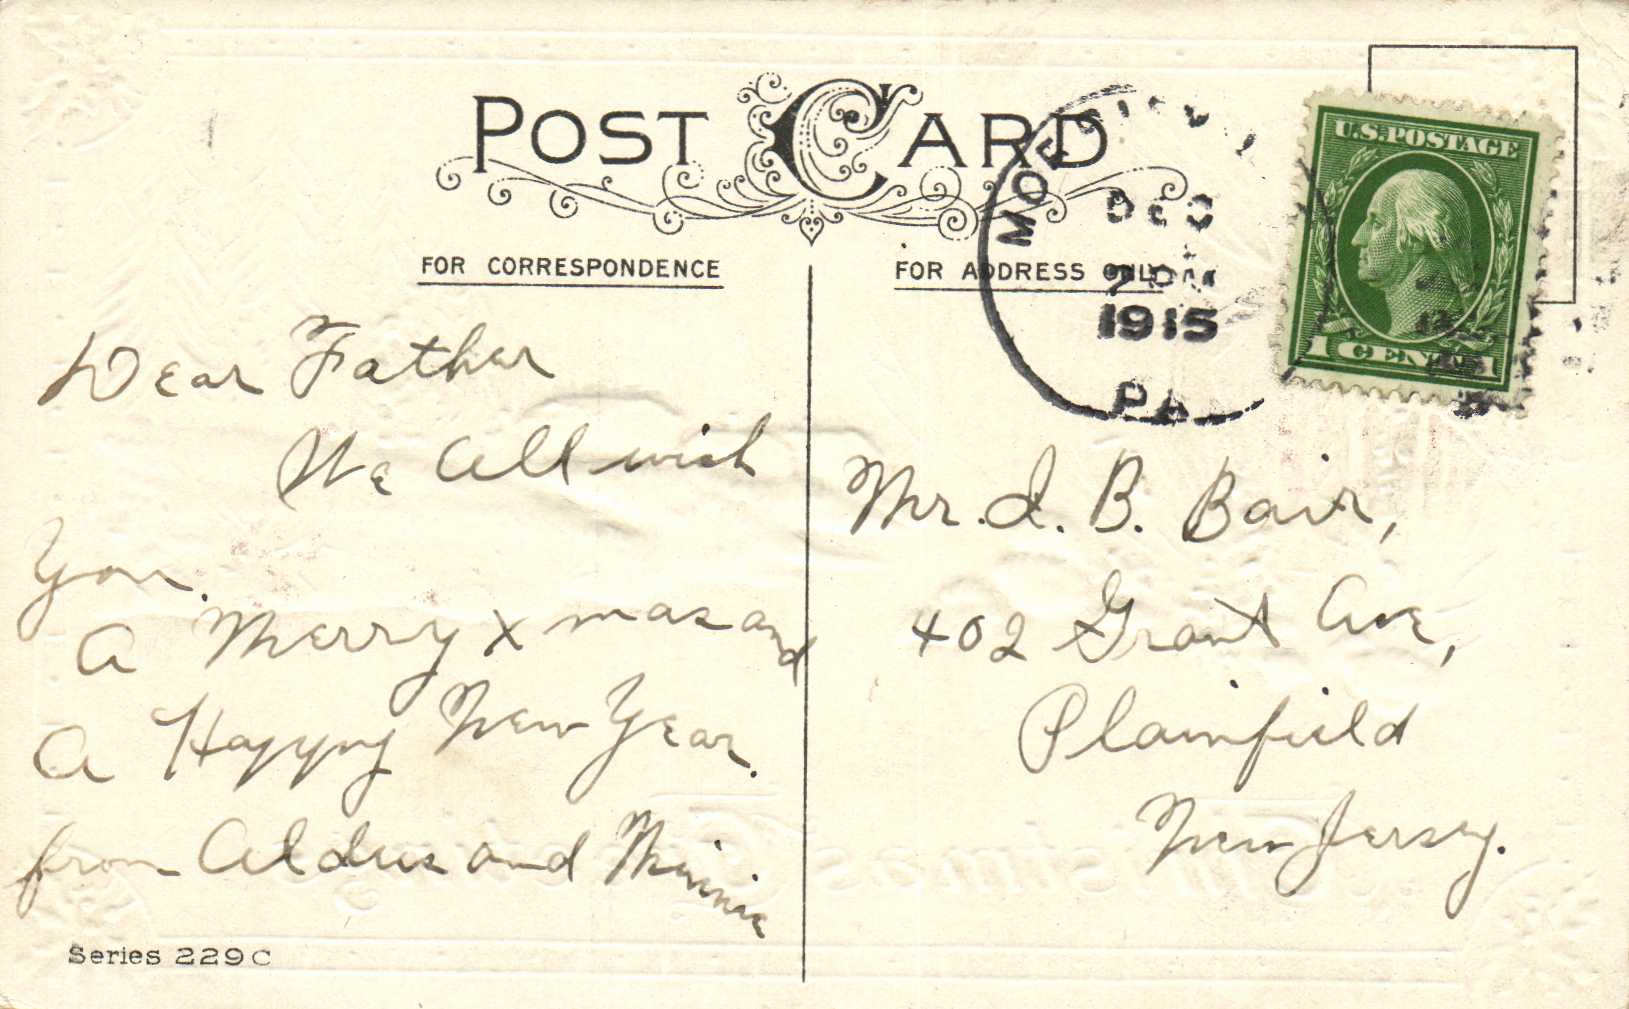 POST CARD
FOR CORRESPONDENCE
FOR ADDRESS ONLY
DEC
1915
PA
U.S. POSTAGE
1 CENT 1
Dear Father
We all wish
you
A Merry Xmas and
A Happy New Year.
from Aldus and Minnie
Mr. I. B. Bair,
402 Grant Ave,
Plainfield
New Jersey.
Series 229 C